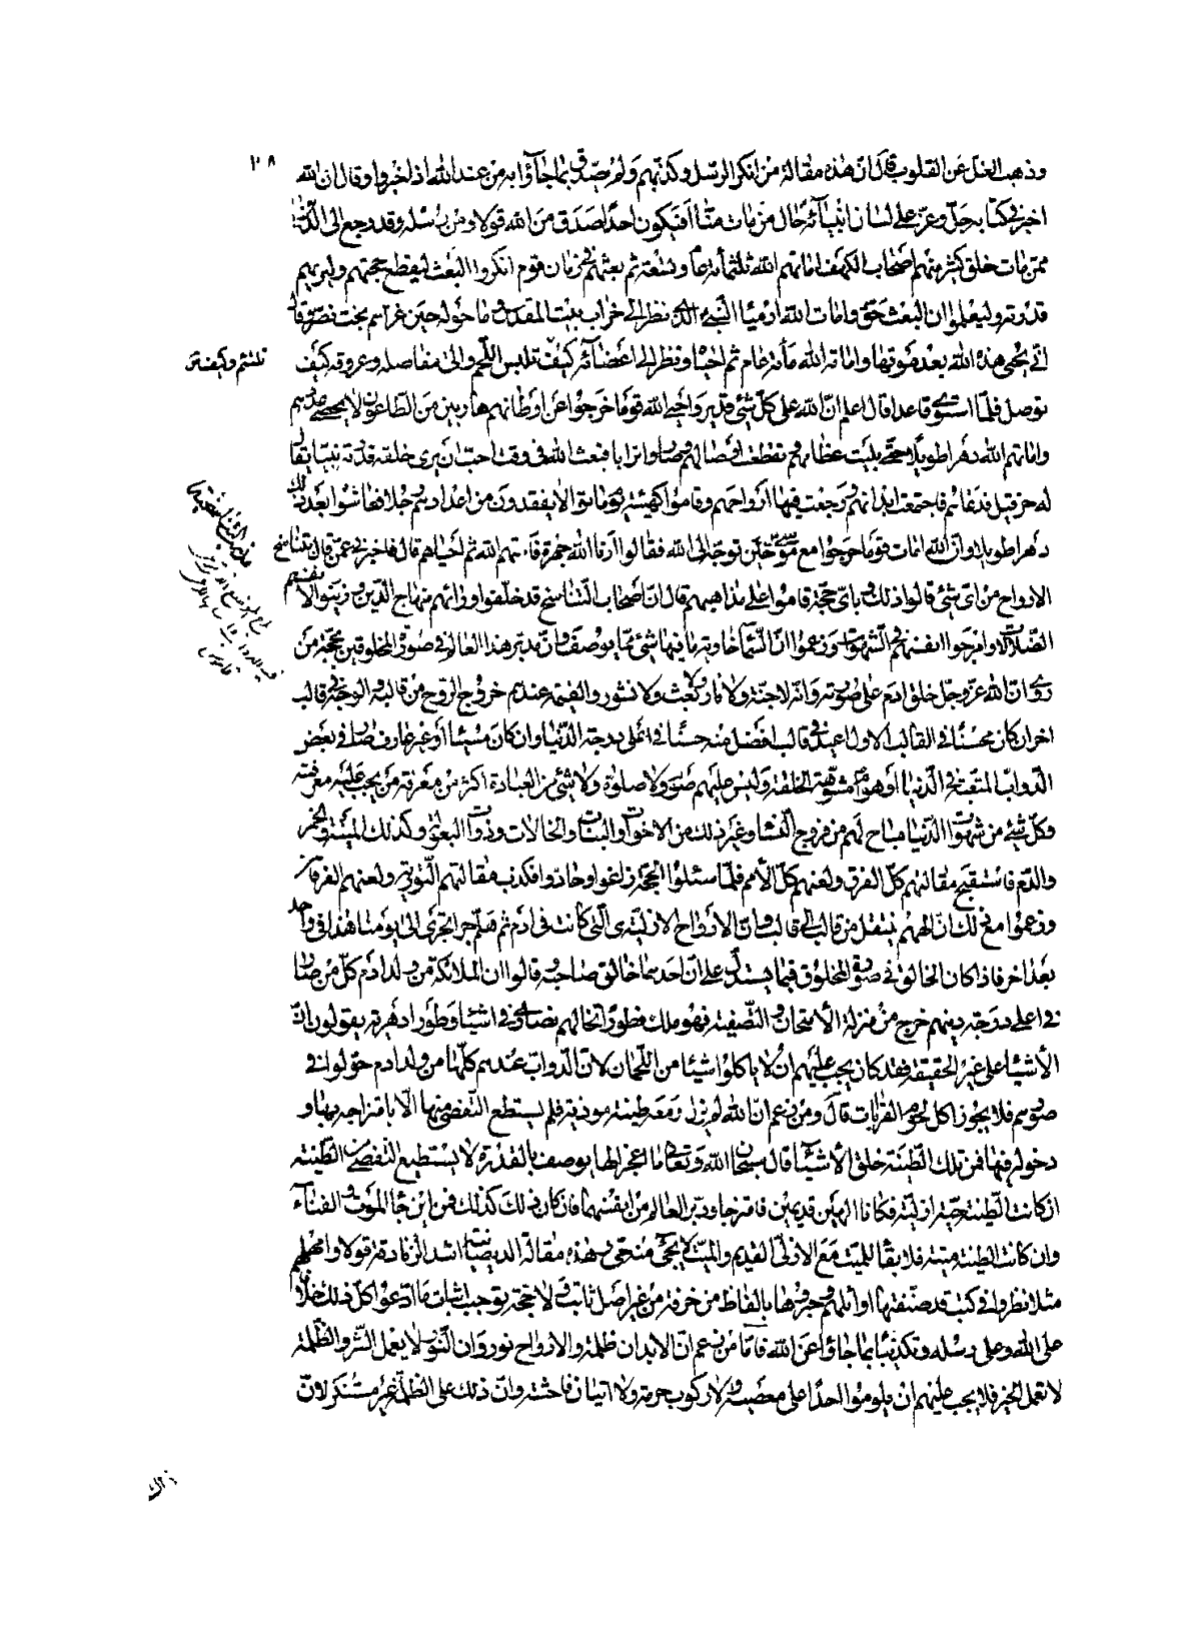 وذهب الغل عن القلوب قال ان هذه مقالة من انكر الرسل وكذبهم ولم يصدق بما جاؤا به من عند الله اذ اخبروا وقال ان الله
اخبر في كتابه جل وعز على لسان انبيائه حال من مات منا افيكون احد اصدق من الله قولا ومن رسله وقد رجع الى الدنيا
ممن مات خلق كثير منهم اصحاب الكهف اماتهم الله ثلثمأة عام وتسعة ثم بعثهم في زمان قوم انكروا البعث ليقطع حجتهم وليريهم
قدرته وليعلموا ان البعث حق وامات الله ارميا النبي الذي نظر الى خراب بيت المقدس وما حوله حين غزاهم بخت نصر وقال
انى يحيى هذه الله بعد موتها واماته الله مأة عام ثم احياه ونظر الى اعضائه كيف تلبس اللحم والى مفاصله وعروقه كيف
توصل فلما استوى قاعدا قال اعلم ان الله على كل شئ قدير واحيى الله قوما خرجوا عن اوطانهم هاربين من الطاعون لا يحصى عددهم
واماتهم الله دهرا طويلا حتى بليت عظامهم وتقطعت اوصالهم وصاروا ترابا فبعث الله في وقت احب ان يرى خلقه قدرته نبيا يقال
له حزقيل فدعاهم فاجتمعت ابدانهم ورجعت فيها ارواحهم وقاموا كهيئة يوم ماتوا لا يفقدون من اعدادهم رجلا فعاشوا بعد ذلك
دهرا طويلا وان الله امات قوما خرجوا مع موسى حين توجه الى الله فقالوا ارنا الله جهرة فاماتهم الله ثم احياهم قال فاخبرني عمن قال بتناسخ
الارواح من اي شئ قالوا ذلك وباي حجة قاموا على مذاهبهم قال ان اصحاب التناسخ قد خلفوا وراءهم منهاج الدين وزينوا لانفسهم
الضلالات وامرجوا انفسهم في الشهوات وزعموا ان السماء خاوية ما فيها شئ مما يوصف وان مدبر هذا العالم في صورة المخلوقين بحجة من
روى ان الله عز وجل خلق ادم على صورته وانه لا جنة ولا نار ولا بعث ولا نشور والقيمة عندهم خروج الروح من قالبه وولوجه في قالب
اخر ان كان محسنا في القالب الاول اعيد في قالب افضل منه حسنا في اعلى درجة الدنيا وان كان مسيئا او غير عارف صار في بعض
الدواب المتعبة في الدنيا او هوام مشوهة الخلقة وليس عليهم صوم ولا صلوة ولا شئ من العبادة اكثر من معرفة من يجب عليه معرفته
وكل شئ من شهوات الدنيا مباح لهم من فروج النساء وغير ذلك من الاخوات والبنات والخالات وذوات البعولة وكذلك الميتة والخمر
والدم فاستقبح مقالتهم كل الفرق ولعنهم كل الامم فلما سئلوا الحجة زاغوا وحادوا فكذب مقالتهم التورية ولعنهم الفرقان
وزعموا مع ذلك ان الههم ينتقل من قالب الى قالب وان الارواح الازلية هي التي كانت في ادم ثم هلم جرا تجرى الى يومنا هذا في واحد
بعد اخر فاذا كان الخالق في صورة المخلوق فبما يستدل على ان احدهما خالق صاحبه وقالوا ان الملائكة من ولد ادم كل من صار
في اعلى درجة دينهم خرج من منزلة الامتحان والتصفية فهو ملك فطورا تخالهم نصارى في اشياء وطورا دهرية يقولون ان
الاشياء على غير الحقيقة فقد كان يجب عليهم ان لا ياكلوا شيئا من اللحمان لان الدواب عندهم كلها من ولد ادم حولوا في
صورهم فلا يجوز اكل لحوم القرابات قال ومن زعم ان الله لم يزل ومعه طينة موذية فلم يستطع التفصى منها الا بامتزاجه بها و
دخوله فيها فمن تلك الطينة خلق الاشياء قال سبحان الله وتعالى ما اعجز الها يوصف بالقدرة لا يستطيع التفصى من الطينة
ان كانت الطينة حية ازلية فكانا الهين قديمين فامتزجا ودبرا العالم من انفسهما فان كان ذلك كذلك فمن اين جاء الموت والفناء
وان كانت الطينة ميتة فلا بقاء للميت مع الازلي القديم والميت لا يجئ منه حى هذه مقالة الديصانية اشد الزنادقة قولا وامهلهم
مثلا نظروا في كتب قد صنفتها اوائلهم وحبروها بالفاظ مزخرفة من غير اصل ثابت ولا حجة توجب اثبات ما ادعوا كل ذلك خلافا
على الله وعلى رسله وتكذيبا بما جاؤا عن الله فاما من زعم ان الابدان ظلمة والارواح نور وان النور لا يعمل الشر والظلمة
لا تعمل الخير فلا يجب عليهم ان يلوموا احدا على معصية ولا ركوب حرمة ولا اتيان فاحشة وان ذلك على الظلمة غير مستنكر لان